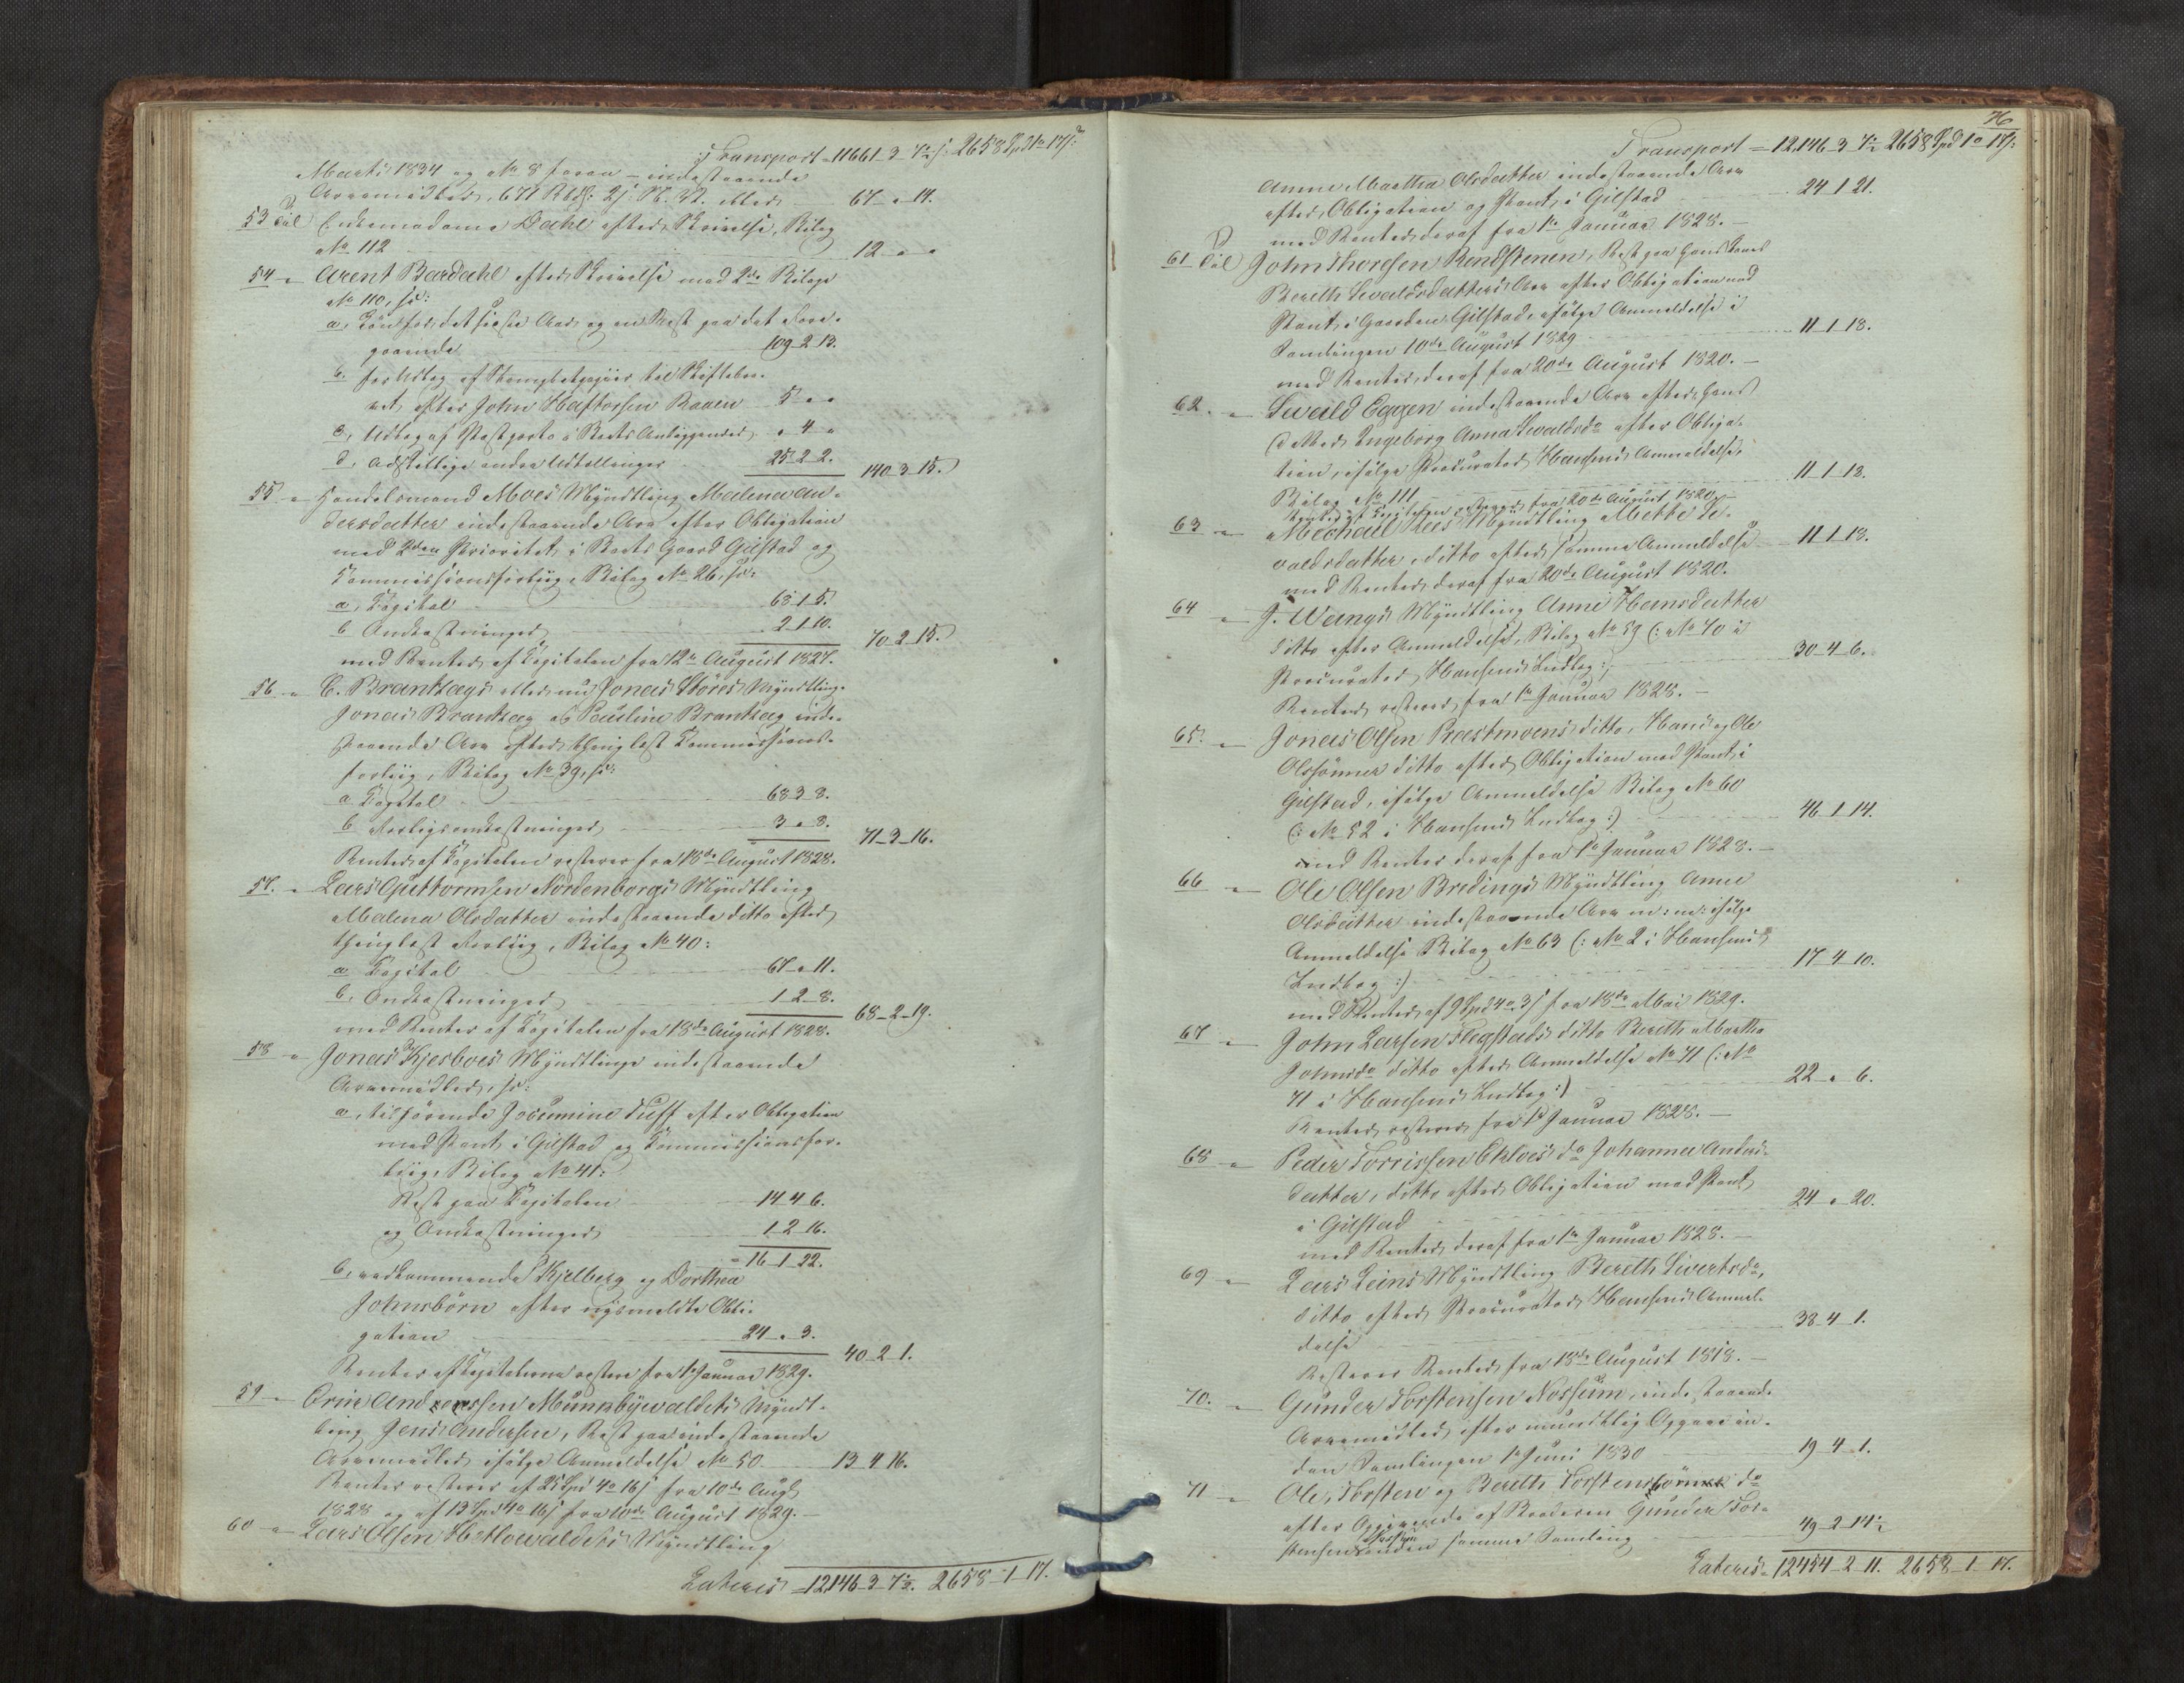 Transport = 11661-3-7½ s: 2658 Spd 1 o 17 s:
Marts 1834 og No 8 foran - indestaaende
Arvemidler, 671 Rbd: 2 s: N. V. eller 67 " 14.
53 Til Enkemadame Dahl efter Skrivelse, Bilag
No 112 12 " "
54 " Arent Bardahl efter Skrivelse med 2de Bilage
No 110, sc:
a, Løn for det sidste Aar og en Rest paa det fore-
gaaende 109-2-13.
b. for Udtog af Stempletpapiir til Skiftebre-
vet efter John Haftorsen Raaen 5 " "
c, Udlæg af Postporto i Boets Anliggender " 4 "
d, adskillige andre Udtællinger 25-2-2. 140-3-15.
55 " Handelsmand Moes Myndtling Malena An-
dersdatter indestaaende Arv efter Obligation
med 2den Prioritet i Boets Gaard Gilstad og
Commissionsforliig, Bilag No 26, sc:
a, Capital 68-1-5.
b Omkostninger 2-1-10. 70-2-15.
med Renter af Capitalen fra 12te August 1827.
56 " C. Brantzegs eller nu Jonas Störes Myndtling
Jonas Brantzeg og Pauline Brantzeg inde-
staaende Arv efter thinglæst Commissions-
forliig, Bilag No 39, sc:
a Capital 68-3-8.
b Forligsomkostninger 3 " 8. 71-3-16.
Renter af Capitalen resterer fra 18de August 1828.
57. " Lars Guttormsen Nordenborgs Myndtling
Malena Olsdatter indestaaende ditto efter
thinglæst Forliig, Bilag No 40:
a Capital 67 " 11.
b, Omkostninger 1-2-8. 68-2-19.
med Renter af Capitalen fra 18de August 1828.
58 " Jonas Kjesboes Myndtlinge indestaaende
Arvemidler, sc:
a, tilhörende Jocumine Tuff efter Obligation
med Pant i Gilstad og Commissionsfor-
liig, Bilag No 41:
Rest paa Capitalen 14-4-6.
og Omkostninger 1-2-16.
= 16-1-22.
b, vedkommende Kjelberg og Dorthea
Johnsbörn efter nysmeldte Obli-
gation 24 " 3. 40-2-1.
Renter af Capitalerne restere fra 1e Januar 1829.
59 " Orm Anderssen Mumbyvaldets Myndt-
ling Jens Andersen, Rest paa indestaaende
Arvemidler ifölge Anmeldelse No 50 13-4-16.
Renter resterer af 25 Spd 4 o 16 s fra 10de Augt
1828 og af 13 Spd 4 o 16 s fra 10de August 1829. -
60 " Lars Olsen Hellowaldets Myndtling
Lateris = 12146-3-7½. 2658-1-17.
76
Transport = 12,146-3-7½ 2658 Spd 1 o 17 s:
Anne Martha Olsdatter indestaaende Arv
efter Obligation og Pant i Gilstad 24-1-21.
med Renter deraf fra 1te Januar 1828. -
61 Til John Thoresen Rendstenen, Rest paa hans Kones
Bereth Sivaldsdatters Arv efter Obligation med
Pant i Gaarden Gilstad, ifölge Anmeldelse i
Samlingen 10de August 1829 11-1-13.
med Renter deraf fra 20de August 1820. -
62. " Sivald Eggen indestaaende Arv efter hans
Datter Ingeborg Anna Sivaldsdr efter Obliga-
tion, ifölge Procurator Hansens Anmeldelse,
Bilag No 111 11-1-13.
Renter af Capitalen resterer fra 20de August 1820. -
63 " Mechael Rees Myndtling Mette Si-
valdsdatter, ditto efter samme Anmeldelse 11-1-13.
med Renter deraf fra 20de August 1820.
64 " J. Wangs Myndtling Anne Hansdatter
ditto efter Anmeldelse, Bilag No 59 (: No 40 i
Procurator Hansens Indlæg :) 30-4-6.
Renter resterer fra 1te Januar 1828. -
65. " Jonas Olsen Præstmoens ditto, Hans og Ole
Olssönner ditto efter Obligation med Pant i
Gilstad, ifölge Anmeldelse Bilag No 60
(: No 52 i Hansens Indlæg :) 46-1-14.
med Renter deraf fra 1e Januar 1828. -
66 " Ole Olsen Bredings Myndtling Anne
Olsdatter indestaaende Arv m: m: ifölge
Anmeldelse Bilag No 63 (: No 2 i Hansens
Indlæg :) 17-4-10.
med Renter af 9 Spd 4 o 3 s fra 18de Mai 1829.
67 " John Larsen Fægstads ditto Bereth Martha
Johnsdr ditto efter Anmeldelse No 71 (: No
71 i Hansens Indlæg :) 22 " 6.
Renter resterer fra 1e Januar 1828. -
68 " Peder Torrissen Ekloes do Johanna Anders-
datter, ditto efter Obligation med Pant
i Gilstad 24 " 20.
med Renter deraf fra 1te Januar 1828. -
69 " Lars Leins Myndtling Bereth Sivertsdr,
ditto efter Procurator Hansens Anmel-
delse 38-4-1.
Resterer Renter fra 18de August 1818. -
70. " Gunder Torstensen Nossum, indestaaende
Arvemidler efter mundtlig Opgave in-
den Samlingen 1e Juni 1830 19-4-1.
71 " Ole, Torsten og Bereth Torstensbörn do
efter Opgivende af Broderen Gunder Tor-
stensen Nossum inden samme Samling 49-2-14½
Lateris = 12454-2-11. 2658-1-17.